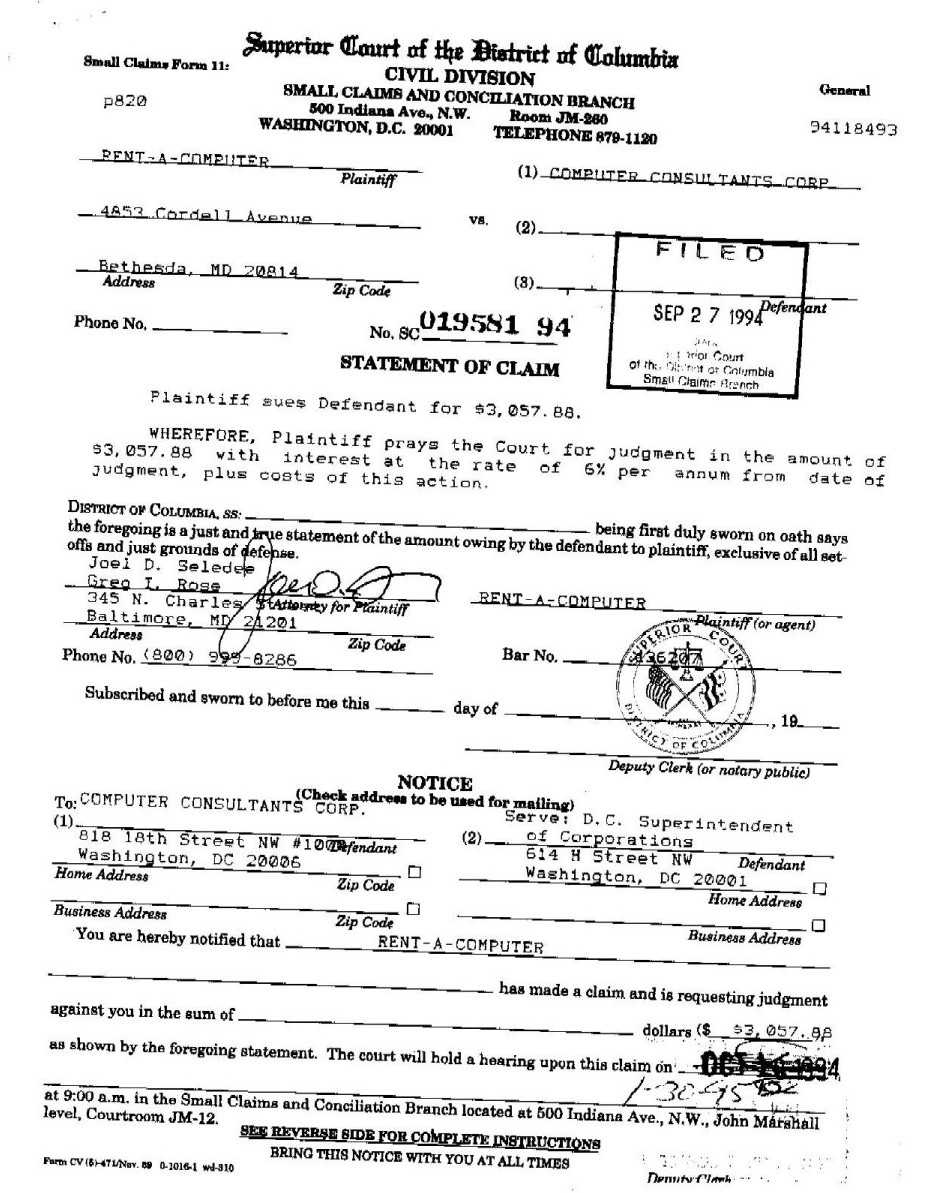 Superior Court of the District of Columbia
CIVIL DIVISION
Small Claims Form 11:
SMALL CLAIMS AND CONCILIATION BRANCH
General
p820
500 Indiana Ave., N.W. Room JM-260
WASHINGTON, D.C. 20001 TELEPHONE 879-1120
94118493
RENT-A-COMPUTER
Plaintiff
(1) COMPUTER CONSULTANTS CORP
4853 Cordell Avenue
vs.
(2)
FILED
Bethesda, MD 20814
Address Zip Code
(3)
Defendant
SEP 27 1994
Phone No.
No. SC 019581 94
Court
of the District of Columbia
Small Claims Branch
STATEMENT OF CLAIM
Plaintiff sues Defendant for $3,057.88.
WHEREFORE, Plaintiff prays the Court for judgment in the amount of
$3,057.88 with interest at the rate of 6% per annum from date of
judgment, plus costs of this action.
DISTRICT OF COLUMBIA, SS: being first duly sworn on oath says
the foregoing is a just and true statement of the amount owing by the defendant to plaintiff, exclusive of all set-
offs and just grounds of defense.
Joel D. Seledee
Greg I. Rose
345 N. Charles St
Attorney for Plaintiff
RENT-A-COMPUTER
Plaintiff (or agent)
Baltimore, MD 21201
Address Zip Code
Phone No. (800) 999-8286
Bar No. 436207
SUPERIOR COURT
DISTRICT OF COLUMBIA
Subscribed and sworn to before me this day of , 19
Deputy Clerk (or notary public)
NOTICE
(Check address to be used for mailing)
To: COMPUTER CONSULTANTS CORP.
Serve: D.C. Superintendent
(1)
818 18th Street NW
Defendant
(2) of Corporations
Washington, DC 20006
614 H Street NW
Defendant
Home Address Zip Code
Washington, DC 20001
Home Address
Business Address Zip Code
Business Address
You are hereby notified that RENT-A-COMPUTER
has made a claim and is requesting judgment
against you in the sum of dollars ($ $3,057.88
as shown by the foregoing statement. The court will hold a hearing upon this claim on OCT 1994
1-30-95
at 9:00 a.m. in the Small Claims and Conciliation Branch located at 500 Indiana Ave., N.W., John Marshall
level, Courtroom JM-12.
SEE REVERSE SIDE FOR COMPLETE INSTRUCTIONS
BRING THIS NOTICE WITH YOU AT ALL TIMES
Form CV (6)-471/Nov. 89 0-1016-1 wd-310
Deputy Clerk